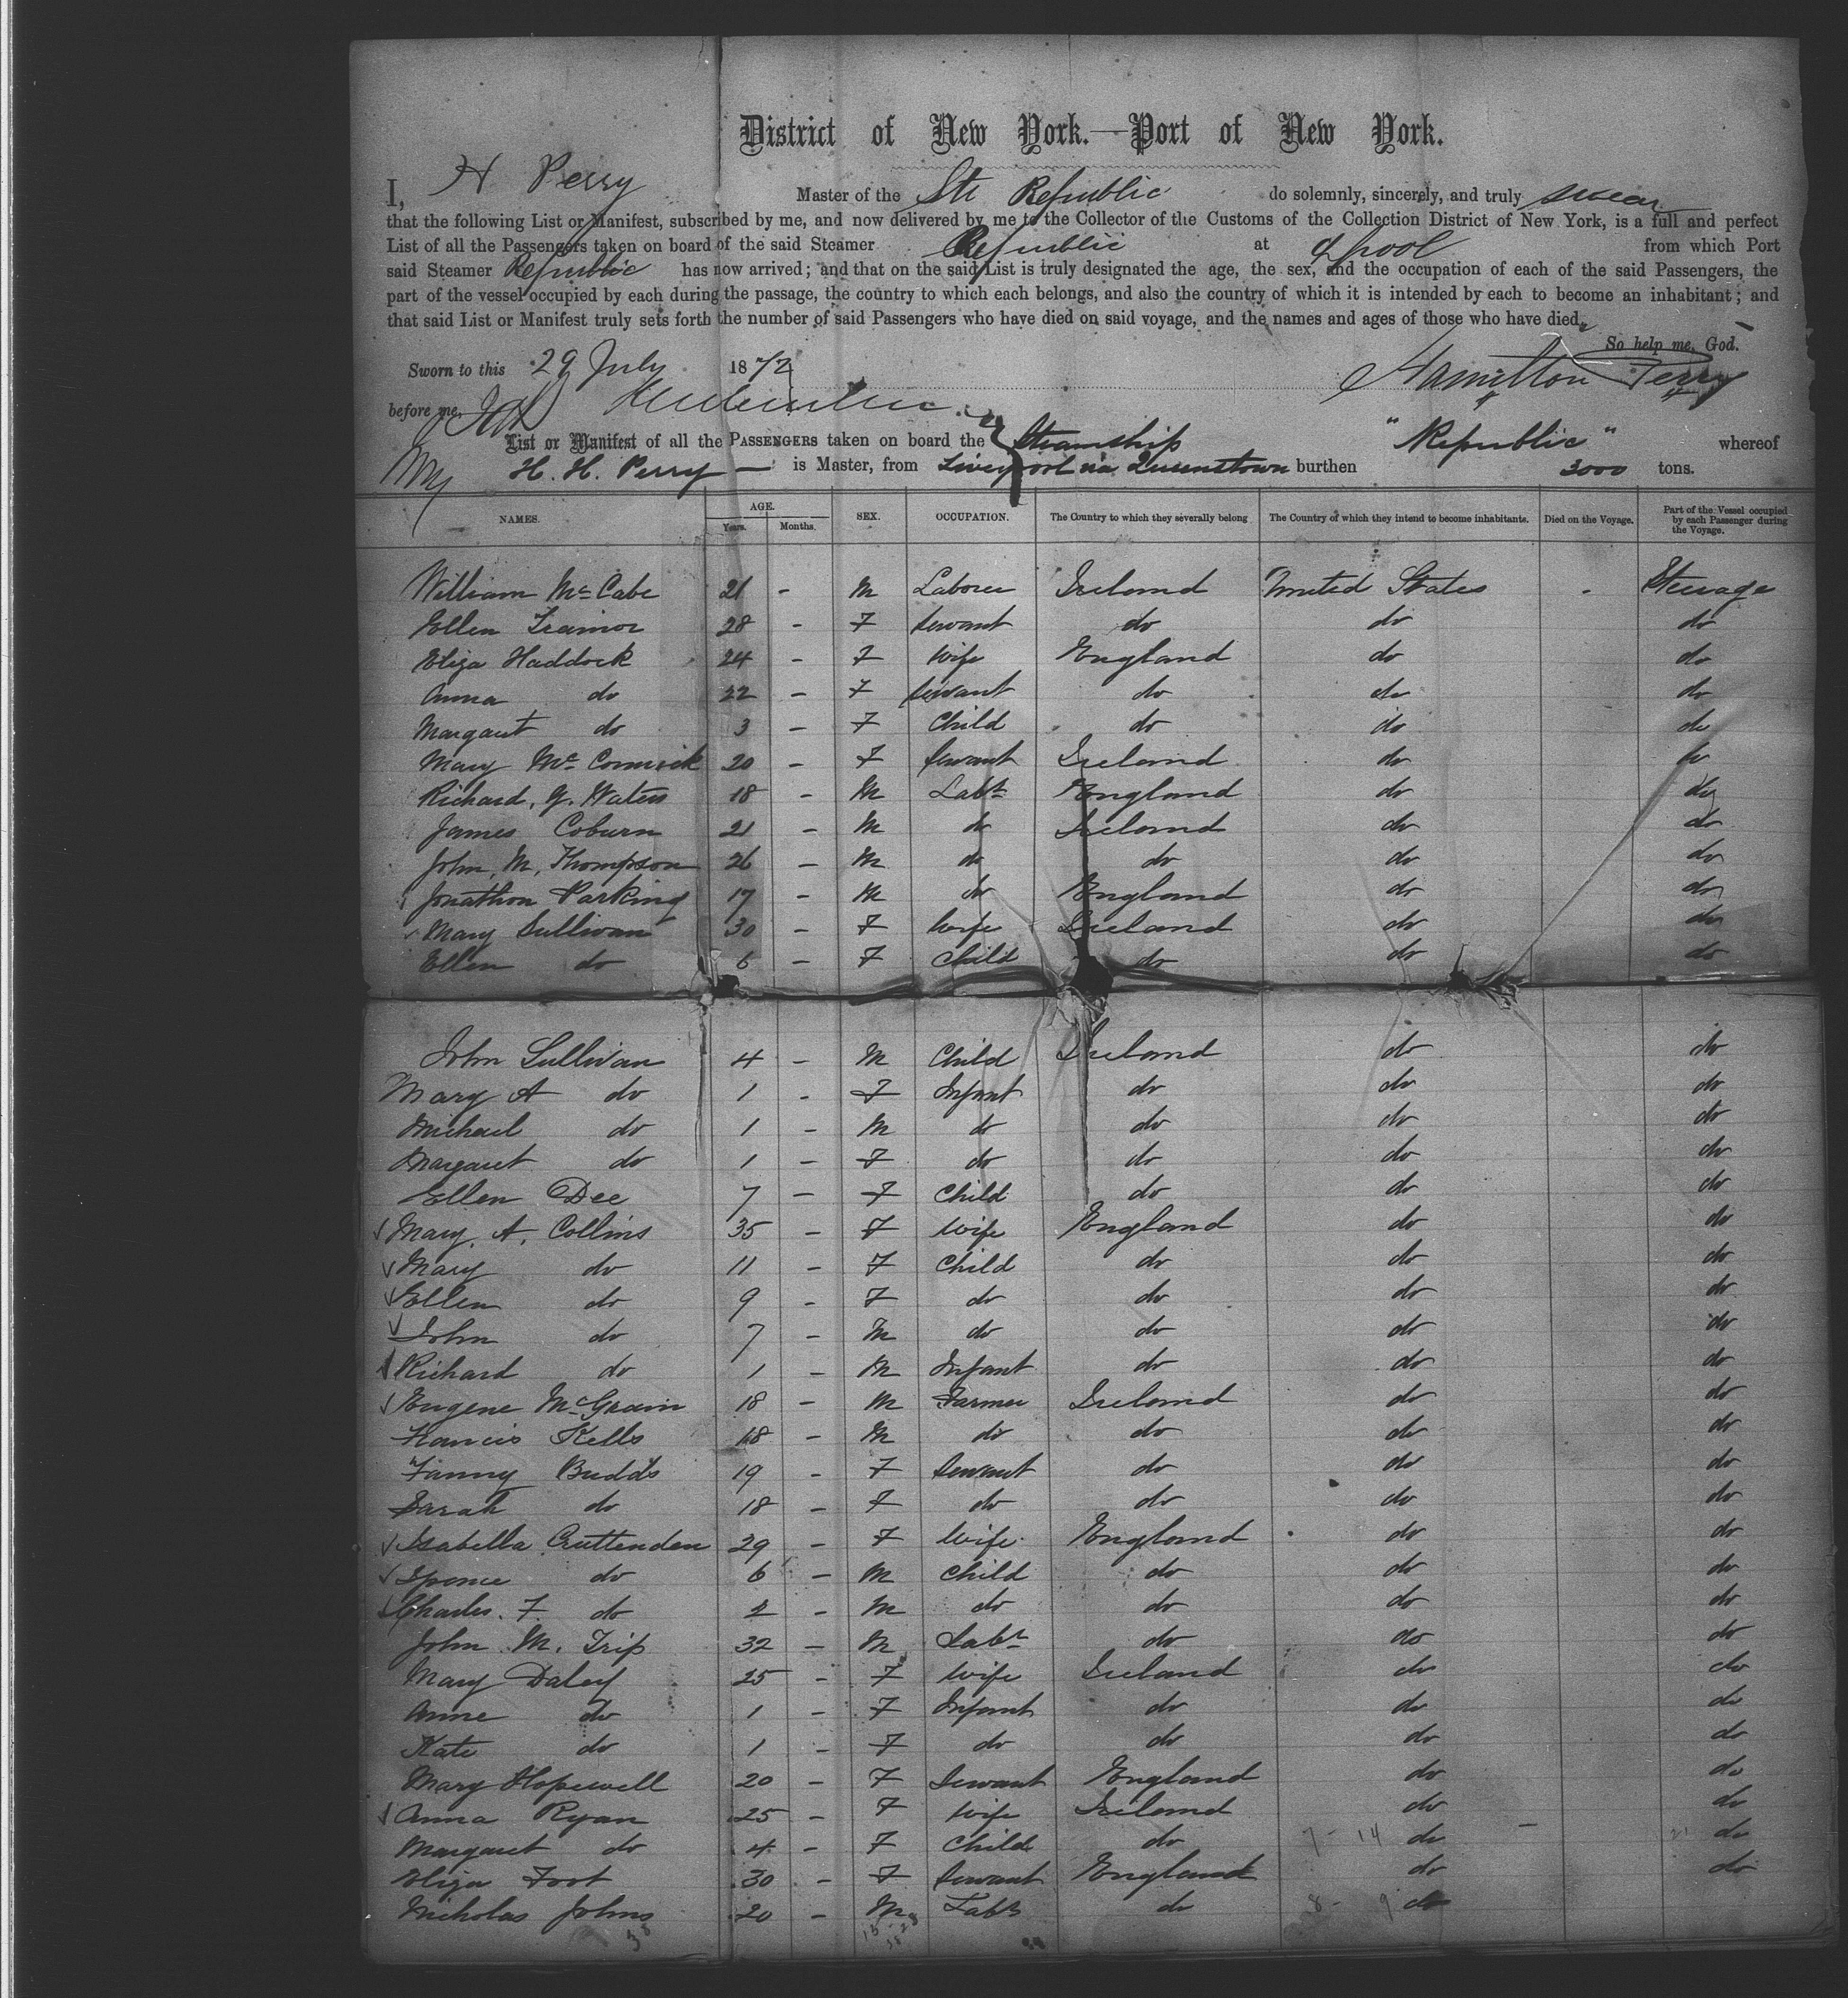 District of New York.—Port of New York.
I, H Perry Master of the Str Republic do solemnly, sincerely, and truly swear
that the following List or Manifest, subscribed by me, and now delivered by me to the Collector of the Customs of the Collection District of New York, is a full and perfect
List of all the Passengers taken on board of the said Steamer Republic at L'pool from which Port
said Steamer Republic has now arrived; and that on the said List is truly designated the age, the sex, and the occupation of each of the said Passengers, the
part of the vessel occupied by each during the passage, the country to which each belongs, and also the country of which it is intended by each to become an inhabitant; and
that said List or Manifest truly sets forth the number of said Passengers who have died on said voyage, and the names and ages of those who have died.
So help me, God.
Sworn to this 29 July 1872 Hamilton Perry
before me,
List or Manifest of all the PASSENGERS taken on board the Steamship "Republic" whereof
H. H. Perry — is Master, from Liverpool via Queenstown burthen 3000 tons.
NAMES. AGE. Years. Months. SEX. OCCUPATION. The Country to which they severally belong The Country of which they intend to become inhabitants. Died on the Voyage. Part of the Vessel occupied by each Passenger during the Voyage.
William McCabe 21 - M Laborer Ireland United States - Steerage
Ellen Trainor 28 - F Servant do do do
Eliza Haddock 24 - F Wife England do do
Anna do 22 - F Servant do do do
Margaret do 3 - F Child do do do
Mary McCormick 20 - F Servant Ireland do do
Richard, G. Waters 18 - M Labr England do do
James Coburn 21 - M do Ireland do do
John, M, Thompson 26 - M do do do do
Jonathon Parking 17 - M do England do do
Mary Sullivan 30 - F Wife Ireland do do
Ellen do 6 - F Child do do do
John Sullivan 4 - M Child Ireland do do
Mary A do 1 - F Infant do do do
Michael do 1 - M do do do do
Margaret do 1 - F do do do do
Ellen Dee 7 - F Child do do do
Mary, A, Collins 35 - F Wife England do do
Mary do 11 - F Child do do do
Ellen do 9 - F do do do do
John do 7 - M do do do do
Richard do 1 - M Infant do do do
Eugene McGrain 18 - M Farmer Ireland do do
Francis Kells 18 - M do do do do
Fanny Budds 19 - F Servant do do do
Sarah do 18 - F do do do do
Isabella Cruttenden 29 - F Wife England do do
Spence do 6 - M Child do do do
Charles. F. do 2 - M do do do do
John M. Trip 32 - M Labr do do do
Mary Daley 25 - F Wife Ireland do do
Anne do 1 - F Infant do do do
Kate do 1 - F do do do do
Mary Hopewell 20 - F Servant England do do
Anna Ryan 25 - F Wife Ireland do do
Margaret do 4 - F Child do 7 - 14 do - 21 do
Eliza Foot 30 - F Servant England do do
Nicholas Johns 20 - M Labr do 8 - 9 do
38